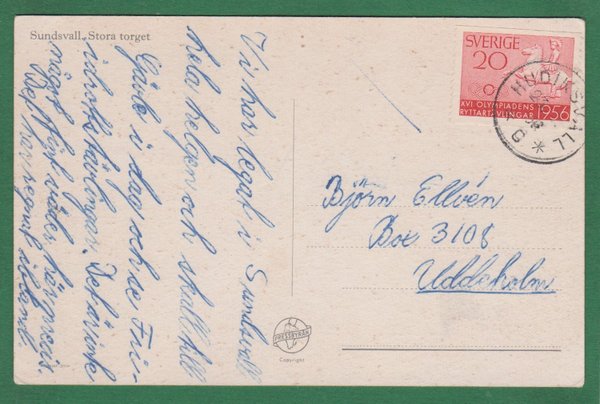 Sundsvall. Stora torget
Vi har legat i Sundsvall
hela helgen och skall till
Gävle i dag och se Fri-
idrottstävlingar. Det är inte
något fint väder här precis.
Det har regnat ibland.
SVERIGE
20
XVI OLYMPIADENS
RYTTARTÄVLINGAR 1956
HUDIKSVALL
Björn Ellvén
Box 3108
Uddeholm
PRESSBYRÅN
Copyright